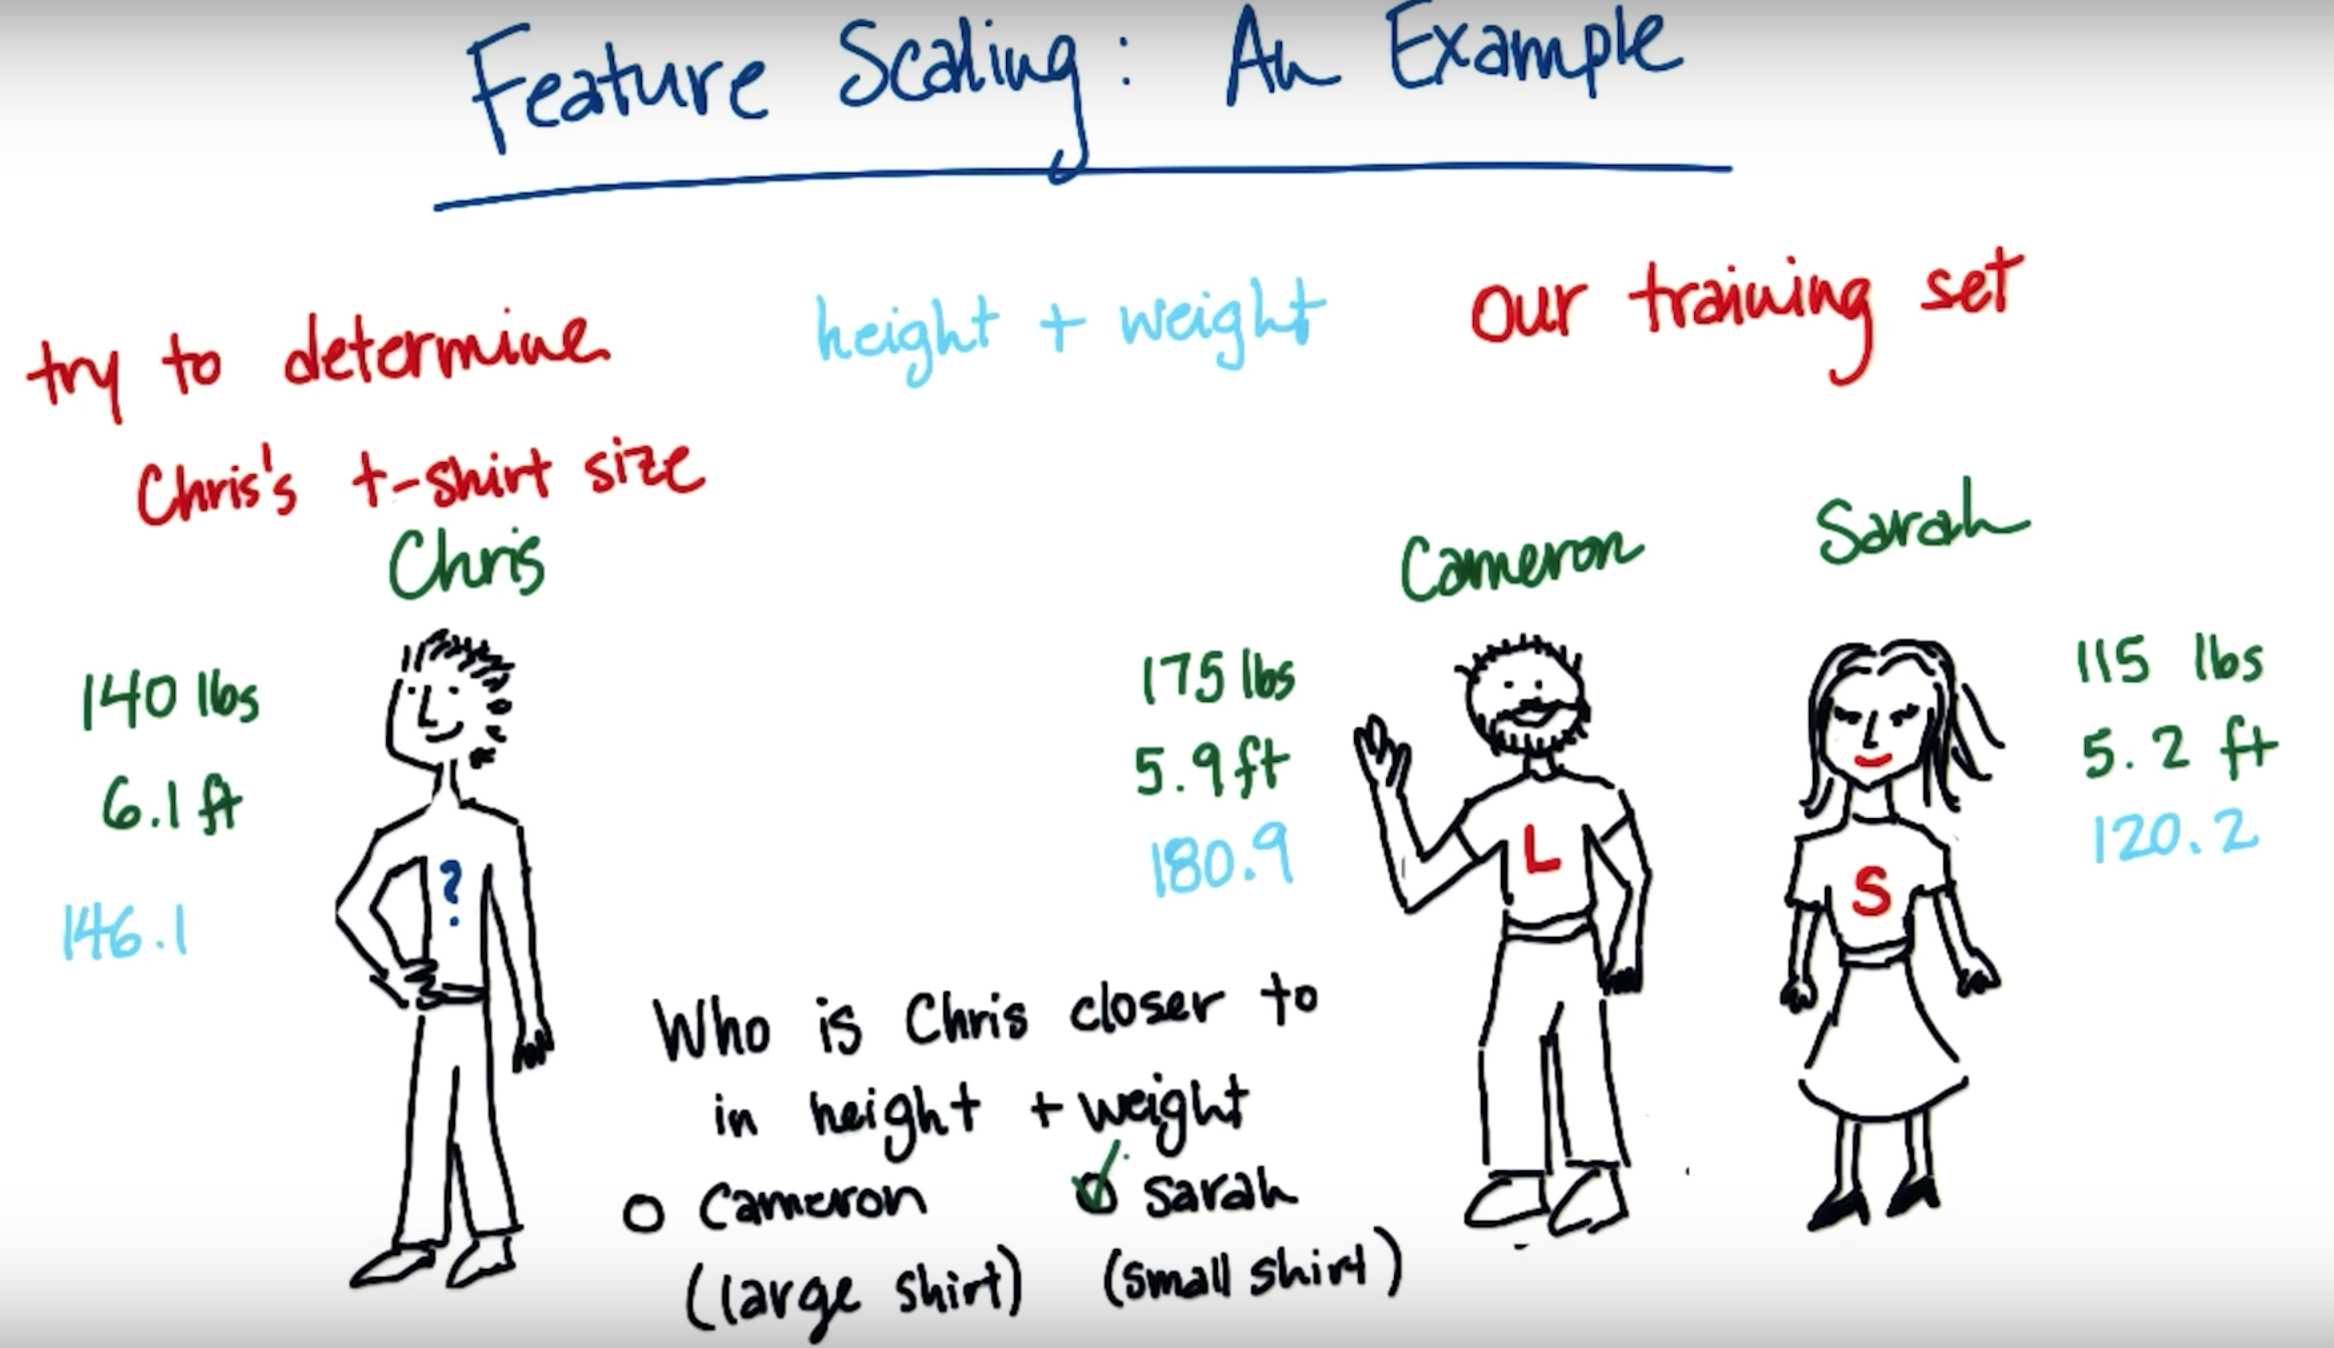 Feature Scaling: An Example
try to determine
Chris's t-shirt size
height + weight
our training set
Chris
140 lbs
6.1 ft
146.1
?
Cameron
175 lbs
5.9 ft
180.9
L
Sarah
115 lbs
5.2 ft
120.2
S
Who is Chris closer to
in height + weight
Cameron
(large shirt)
Sarah
(small shirt)